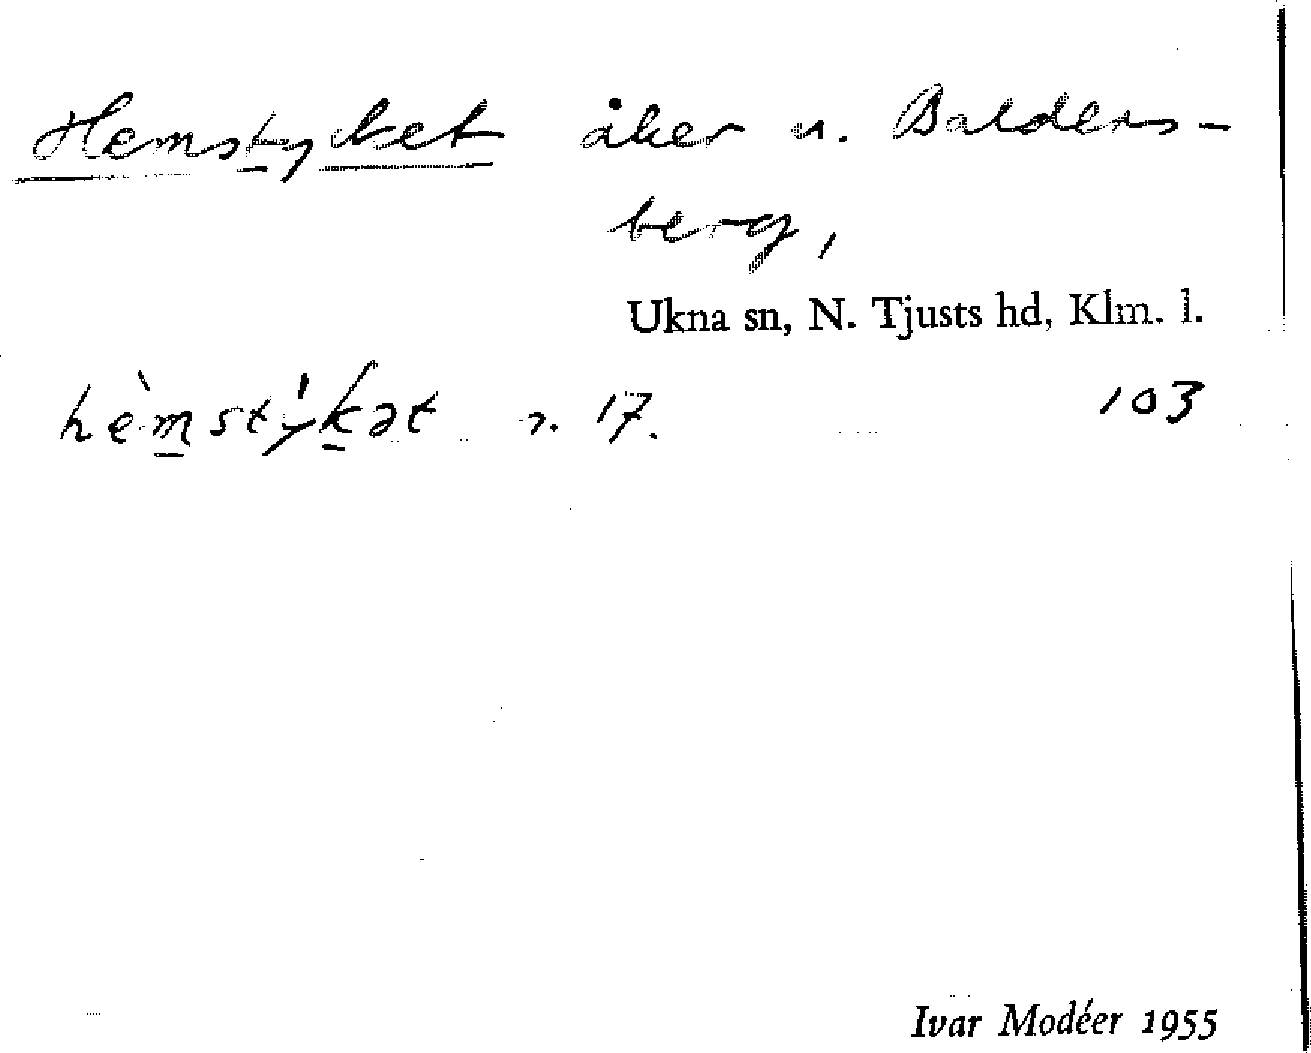 Hemstycket åker u. Balders-
berg,
Ukna sn, N. Tjusts hd, Klm. l.
hèmstýkət n. 17. 103
Ivar Modéer 1955